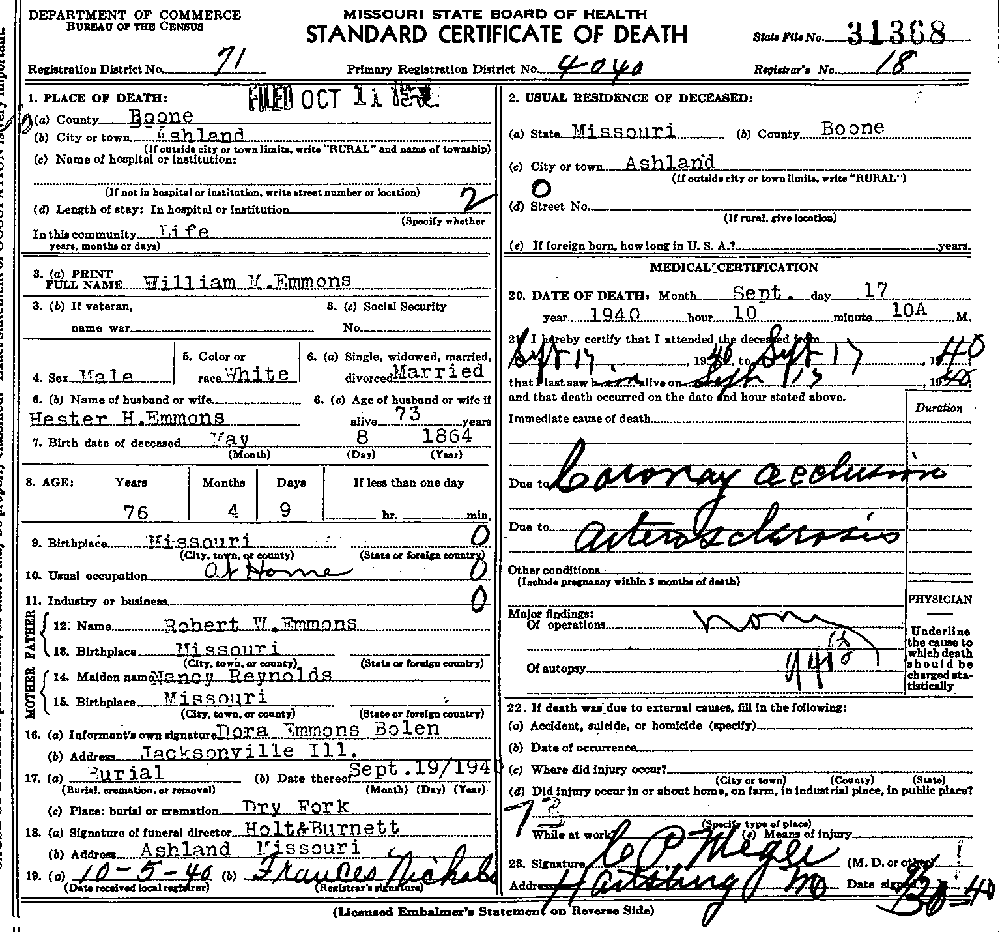 DEPARTMENT OF COMMERCE
BUREAU OF THE CENSUS
MISSOURI STATE BOARD OF HEALTH
STANDARD CERTIFICATE OF DEATH
State File No. 31368
Registration District No. 71
Primary Registration District No. 4040
Registrar's No. 18
FILED OCT 11
1. PLACE OF DEATH:
(a) County Boone
(b) City or town Ashland
(If outside city or town limits, write "RURAL" and name of township)
(c) Name of hospital or institution:
(If not in hospital or institution, write street number or location)
(d) Length of stay: In hospital or institution 2
(Specify whether
In this community Life
years, months or days)
3. (a) PRINT FULL NAME William M. Emmons
3. (b) If veteran, name war
3. (c) Social Security No.
4. Sex Male
5. Color or race White
6. (a) Single, widowed, married, divorced Married
6. (b) Name of husband or wife Hester H. Emmons
6. (c) Age of husband or wife if alive 73 years
7. Birth date of deceased May 8 1864
(Month) (Day) (Year)
8. AGE: Years Months Days If less than one day
76 4 9 hr. min.
9. Birthplace Missouri 0
(City, town, or county) (State or foreign country)
10. Usual occupation At Home 0
11. Industry or business 0
FATHER
12. Name Robert W. Emmons
13. Birthplace Missouri
(City, town, or county) (State or foreign country)
MOTHER
14. Maiden name Nancy Reynolds
15. Birthplace Missouri
(City, town, or county) (State or foreign country)
16. (a) Informant's own signature Dora Emmons Bolen
(b) Address Jacksonville Ill.
17. (a) Burial (b) Date thereof Sept. 19/194
(Burial, cremation, or removal) (Month) (Day) (Year)
(c) Place: burial or cremation Dry Fork
18. (a) Signature of funeral director Holt&Burnett
(b) Address Ashland Missouri
19. (a) 10-5-40 (b) Frances Nichols
(Date received local registrar) (Registrar's signature)
2. USUAL RESIDENCE OF DECEASED:
(a) State Missouri (b) County Boone
(c) City or town Ashland
(If outside city or town limits, write "RURAL")
0
(d) Street No.
(If rural, give location)
(e) If foreign born, how long in U. S. A.? years.
MEDICAL CERTIFICATION
20. DATE OF DEATH: Month Sept. day 17
year 1940 hour 10 minute 10A M.
21. I hereby certify that I attended the deceased from
Sept 17, 1940, to Sept 17, 1940
that I last saw him alive on Sept 17, 1940
and that death occurred on the date and hour stated above.
Duration
Immediate cause of death
Due to Coronay acclusion
Due to arterosclerosis
Other conditions
(Include pregnancy within 3 months of death)
PHYSICIAN
Major findings:
Of operations none
Of autopsy
Underline the cause to which death should be charged statistically
22. If death was due to external causes, fill in the following:
(a) Accident, suicide, or homicide (specify)
(b) Date of occurrence
(c) Where did injury occur?
(City or town) (County) (State)
(d) Did injury occur in or about home, on farm, in industrial place, in public place?
(Specify type of place)
While at work (e) Means of injury
23. Signature (M. D. or other)
Address Hartsburg Mo Date signed
(Licensed Embalmer's Statement on Reverse Side)